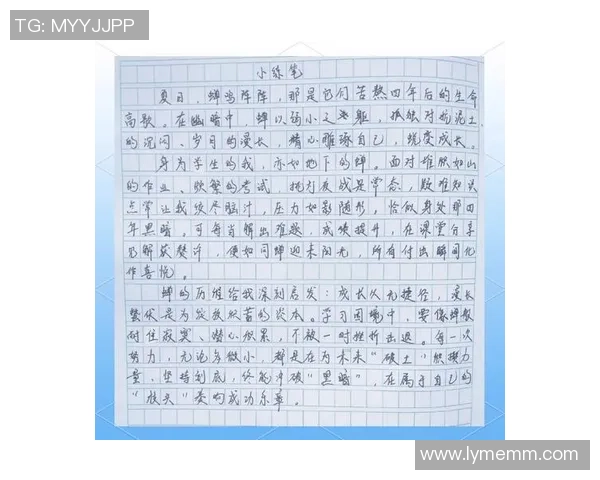 TG: MYYJJPP
小练笔
夏日,蝉鸣阵阵,那是它们苦熬四年后的生命
高歌。在幽暗中,蝉以弱小之躯,孤独对抗泥土
的沉闷、岁月的漫长,精心雕琢自己,蜕变成长。
身为学生的我,亦如地下的蝉。面对堆积如山
的作业、频繁的考试,挑灯夜战是常态,疑难知识
点常让我绞尽脑汁,压力如影随形,恰似身处那四
年黑暗。可每当解出难题,成绩提升,在课堂分享
见解获赞许,便如同蝉迎来阳光,所有付出瞬间化
作喜悦。
蝉的历程给我深刻启发:成长从无捷径,漫长
蛰伏是为发展积蓄的资本。学习困境中,要像蝉般
耐住寂寞、潜心积累,不被一时挫折击退。每一次
努力,无论多微小,都是在为未来“破土”积攒力
量,坚持到底,终能冲破“黑暗”,在属于自己的
“枝头”奏响成功乐章。
www.lymemm.com